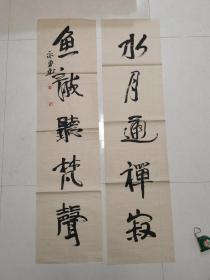 水月通禪寂
魚龍聽梵聲